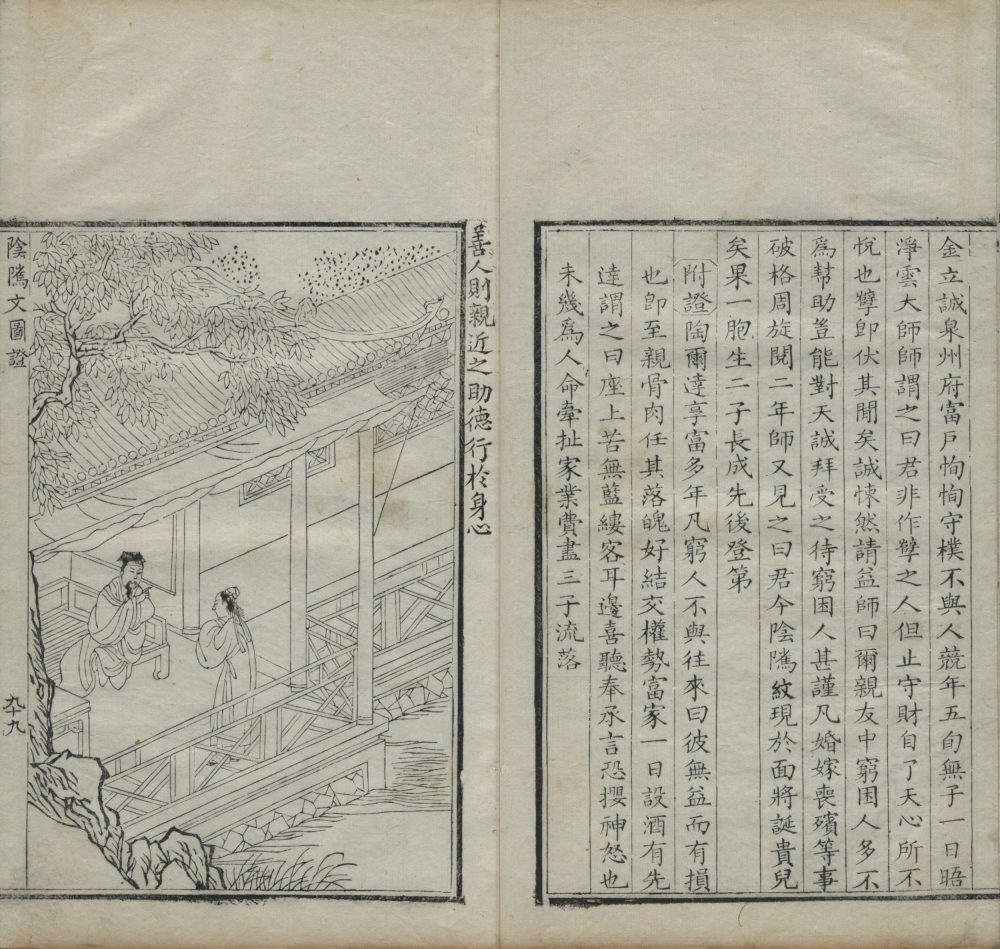 金立誠泉州府富戶恂恂守樸不與人競年五旬無子一日晤
淨雲大師師謂之曰君非作孽之人但止守財自了天心所不
悅也孽卽伏其閒矣誠悚然請益師曰爾親友中窮困人多不
爲幫助豈能對天誠拜受之待窮困人甚謹凡婚嫁喪殯等事
破格周旋閱二年師又見之曰君今陰隲紋現於面將誕貴兒
矣果一胞生二子長成先後登第
附證陶爾達享富多年凡窮人不與往來曰彼無益而有損
也卽至親骨肉任其落魄好結交權勢富家一日設酒有先
達謂之曰座上苦無藍縷客耳邊喜聽奉承言恐攖神怒也
未幾爲人命牽扯家業費盡三子流落
善人則親近之助德行於身心
陰隲文圖證
九十九